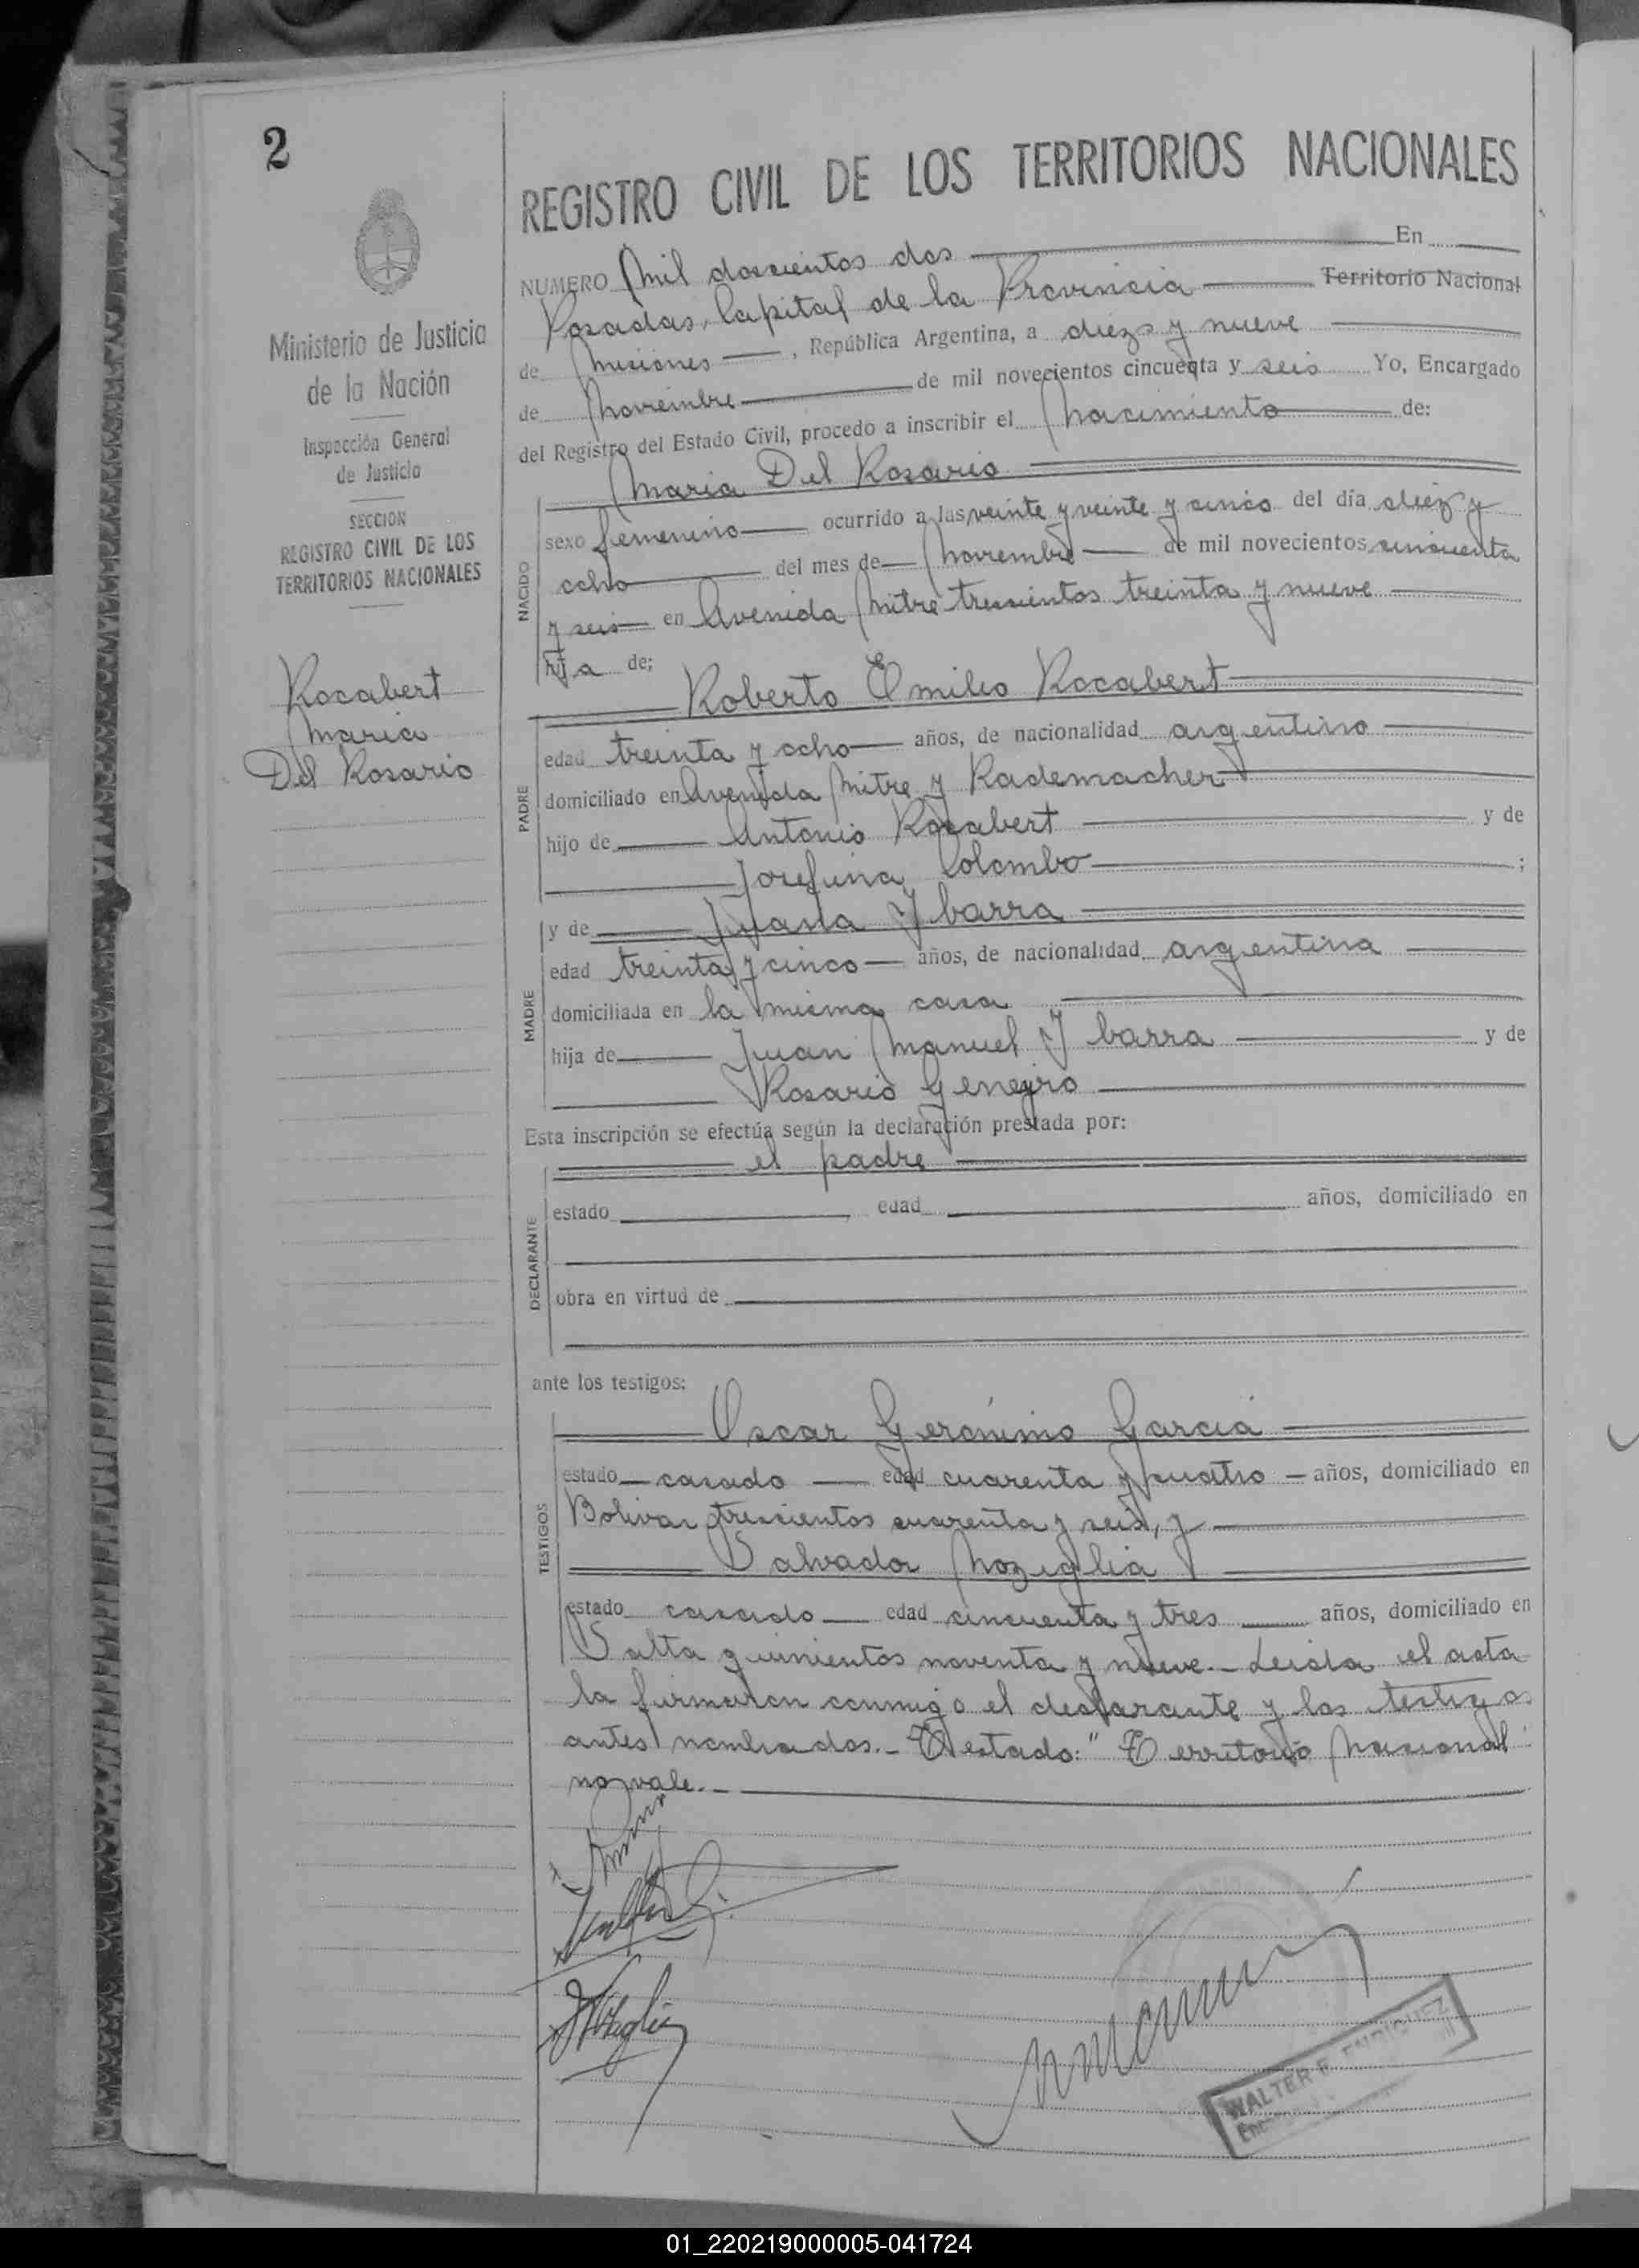 2
Ministerio de Justicia
de la Nación
Inspección General
de Justicia
SECCION
REGISTRO CIVIL DE LOS
TERRITORIOS NACIONALES
Rocabert
Maria
Del Rosario
REGISTRO CIVIL DE LOS TERRITORIOS NACIONALES
NUMERO Mil doscientos dos En
Posadas, Capital de la Provincia Territorio Nacional
de Misiones, República Argentina, a diez y nueve
de Noviembre de mil novecientos cincuenta y seis Yo, Encargado
del Registro del Estado Civil, procedo a inscribir el Nacimiento de:
Maria Del Rosario
NACIDO
sexo femenino ocurrido a las veinte y veinte y cinco del día diez y
ocho del mes de Noviembre de mil novecientos cincuenta
y seis en Avenida Mitre trescientos treinta y nueve
hija de;
Roberto Emilio Rocabert
PADRE
edad treinta y ocho años, de nacionalidad argentino
domiciliado en Avenida Mitre y Rademacher
hijo de Antonio Rocabert y de
Josefina Colombo ;
MADRE
y de Juana Ybarra
edad treinta y cinco años, de nacionalidad argentina
domiciliada en la misma casa
hija de Juan Manuel Ybarra y de
Rosario
Esta inscripción se efectúa según la declaración prestada por:
el padre
DECLARANTE
estado edad años, domiciliado en
obra en virtud de
ante los testigos:
Oscar Gerónimo Garcia
TESTIGOS
estado casado edad cuarenta y cuatro años, domiciliado en
Bolivar trescientos cuarenta y seis, y
Salvador Noziglia
estado casado edad cincuenta y tres años, domiciliado en
Salta quinientos noventa y nueve.- Leida el acta
la firmaron conmigo el declarante y los testigos
antes nombrados.- Testado: "Territorio Nacional"
no vale.-
WALTER E. ENRIQUEZ
01_220219000005-041724